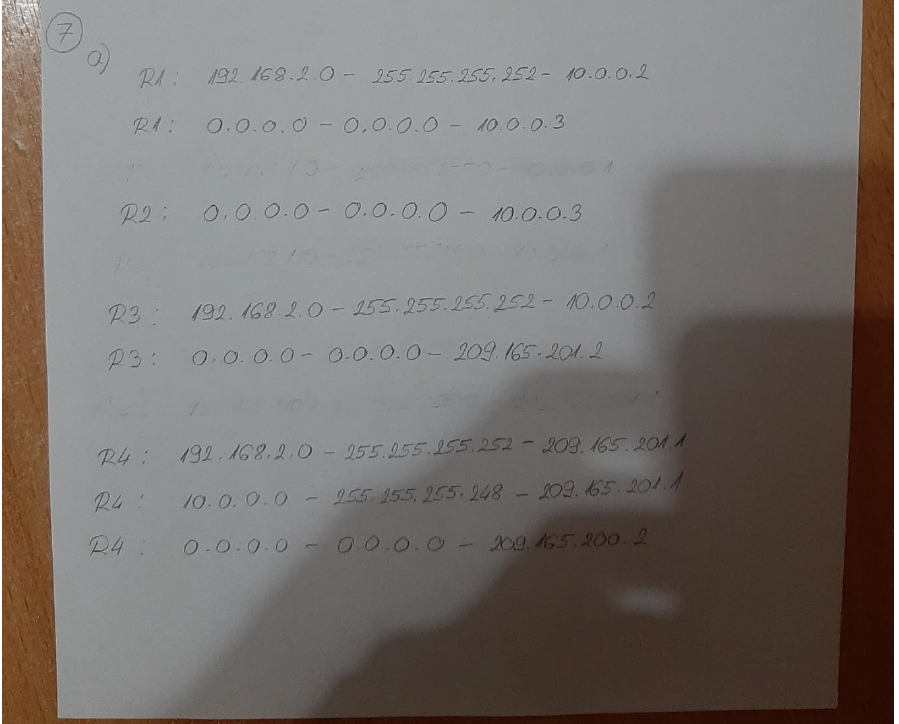 7
a)
R1: 192.168.2.0 - 255.255.255.252 - 10.0.0.2
R1: 0.0.0.0 - 0.0.0.0 - 10.0.0.3
R2: 0.0.0.0 - 0.0.0.0 - 10.0.0.3
R3: 192.168.2.0 - 255.255.255.252 - 10.0.0.2
R3: 0.0.0.0 - 0.0.0.0 - 209.165.201.2
R4: 192.168.2.0 - 255.255.255.252 - 209.165.201.1
R4: 10.0.0.0 - 255.255.255.248 - 209.165.201.1
R4: 0.0.0.0 - 0.0.0.0 - 209.165.200.2